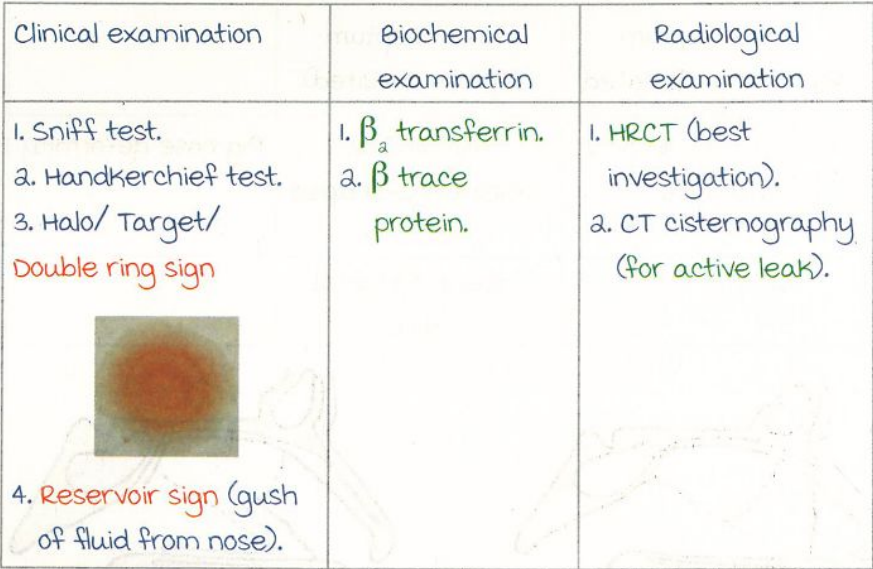 Clinical examination
Biochemical
examination
Radiological
examination
1. Sniff test.
2. Handkerchief test.
3. Halo/ Target/
Double ring sign
4. Reservoir sign (gush
of fluid from nose).
1. β₂ transferrin.
2. β trace
protein.
1. HRCT (best
investigation).
2. CT cisternography
(for active leak).